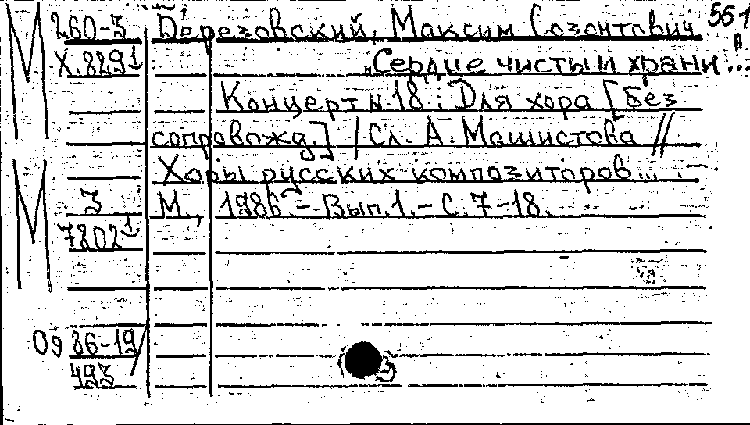 М 260-3 Березовский, Максим Созонтович 551
Х.829¹ „Сердце чисты и храни...
Концерт N 18 : Для хора [без
сопровожд.] / Сл. А. Машистова //
Хоры русских композиторов...
М 3 М., 1986. - Вып. 1. - С. 7-18.
7802¹
09 86-19/
493